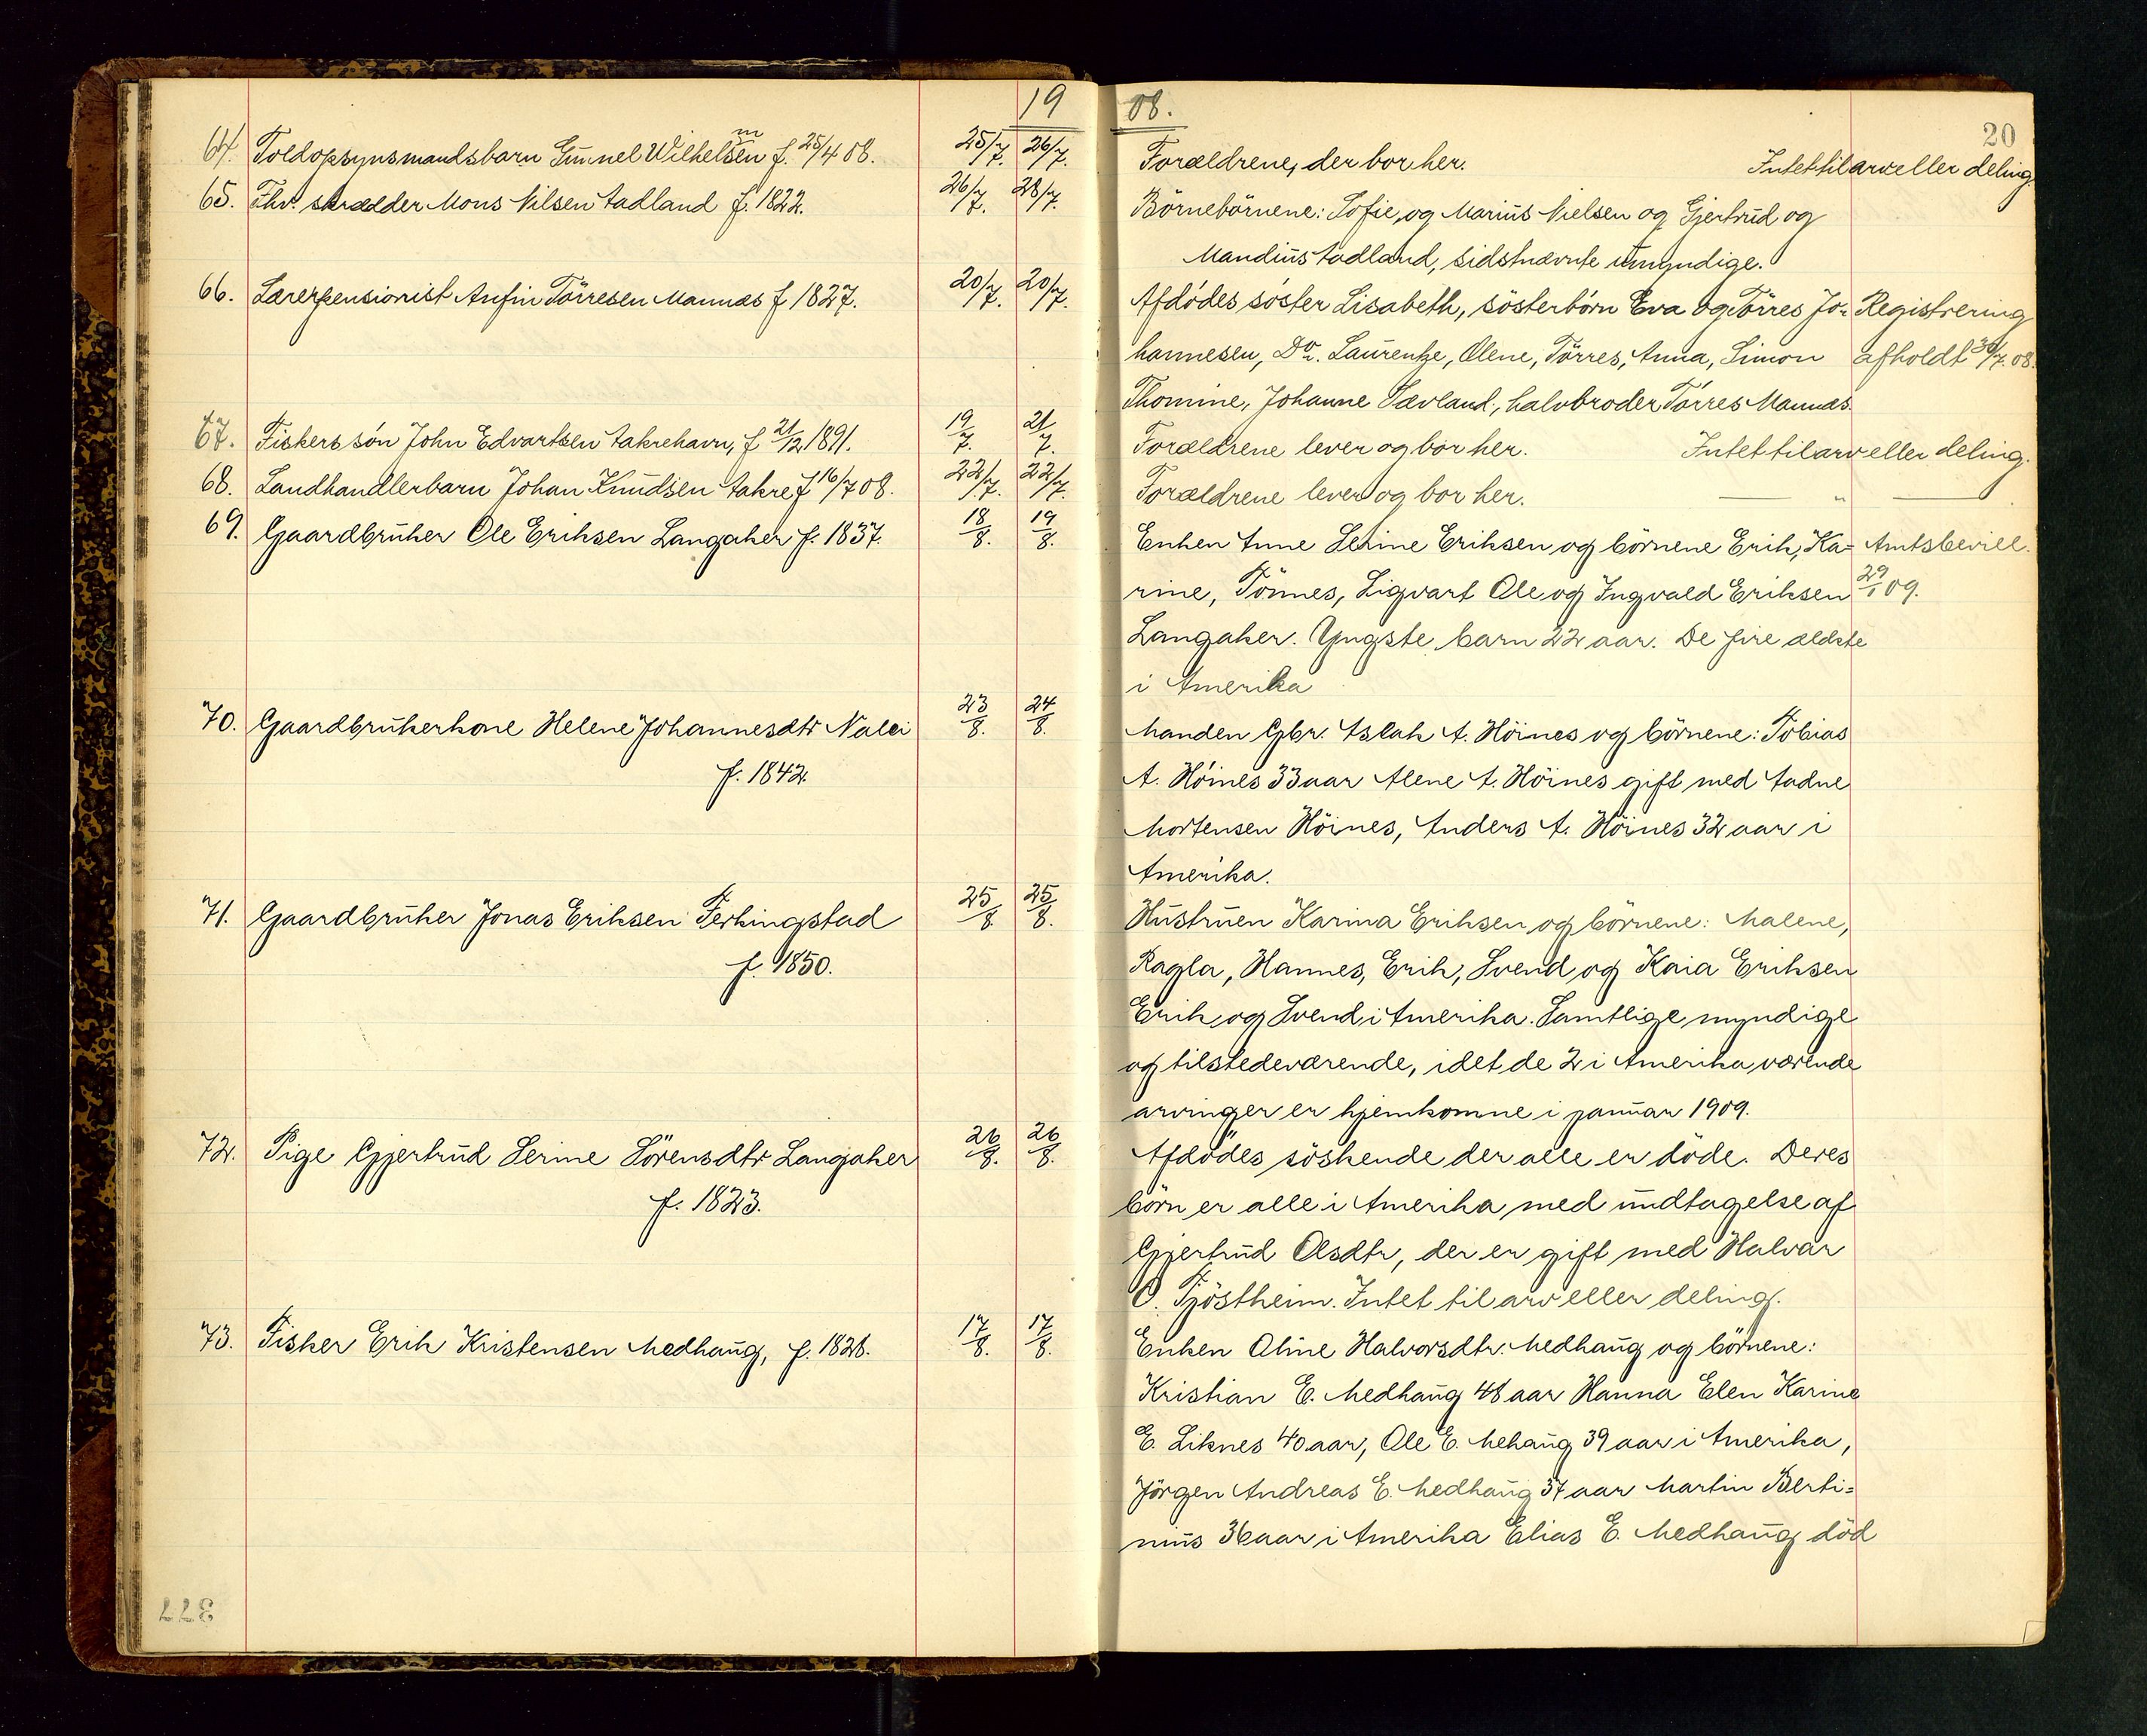 19 08.
20
64. Toldopsynsmandsbarn Gunnel Wilhelmsen f. 25/4 08. 25/7. 26/7. Forældrene, der bor her. Intet til arv eller deling.
65. Fhv. skrædder Mons Nilsen Aadland f. 1822. 26/7. 28/7. Börnebörnene: Sofie og Marius Nielsen og Gjertrud og
Mandius Aadland, sidstnævnte umyndige.
66. Lærerpensionist Anfin Törresen Mannæs f 1827. 20/7. 20/7. Afdödes söster Lisabeth, sösterbörn Eva og Törres Jo- Registrering
hannesen, Do. Laurentze, Olene, Törres, Anna, Simon afholdt 30/7. 08.
Thomine, Johanne Sævland, halvbroder Törres Mannæs.
67. Fiskers sön John Edvartsen Aakrehavn, f 21/12 1891. 19/7. 21/7. Forældrene lever og bor her. Intet til arv eller deling.
68. Landhandlerbarn Johan Knudsen Aakre f 16/7 08. 22/7. 22/7. Forældrene lever og bor her. — " —
69. Gaardbruker Ole Eriksen Langaker f. 1837. 18/8. 19/8. Enken Anne Serine Eriksen og börnene Erik, Ka- Amtsbevill.
rine, Tönnes, Sigvart Ole og Ingvald Eriksen 29/1 09.
Langaker. Yngste barn 22 aar. De fire ældste
i Amerika
70. Gaardbrukerkone Helene Johannesdtr Nalei 23/8. 24/8. Manden Gbr. Aslak A. Höines og börnene: Tobias
f. 1842. A. Höines 33 aar Alene A. Höines gift med Aadne
Mortensen Höines, Anders A. Höines 32 aar i
Amerika.
71. Gaardbruker Jonas Eriksen Ferkingstad 25/8. 25/8. Hustruen Karina Eriksen og börnene: Malene,
f. 1850. Ragla, Hannes, Erik, Svend og Kaia Eriksen
Erik og Svend i Amerika. Samtlige myndige
og tilstedeværende, idet de 2 i Amerika værende
arvinger er hjemkomne i januar 1909.
72. Pige Gjertrud Serine Sörensdtr Langaker 26/8. 26/8. Afdödes söskende der alle er döde. Deres
f. 1823. börn er alle i Amerika med undtagelse af
Gjertrud Olsdtr, der er gift med Halvar
O. Tjöstheim. Intet til arv eller deling.
73. Fisker Erik Kristensen Medhaug, f. 1828. 17/8. 17/8. Enken Oline Halvorsdtr. Medhaug og börnene:
Kristian E. Medhaug 48 aar Hanna Elen Karine
E. Liknes 40 aar, Ole E. Mehaug 39 aar i Amerika,
Jörgen Andreas E. Medhaug 37 aar Martin Berti-
nius 36 aar i Amerika Elias E. Medhaug död
377